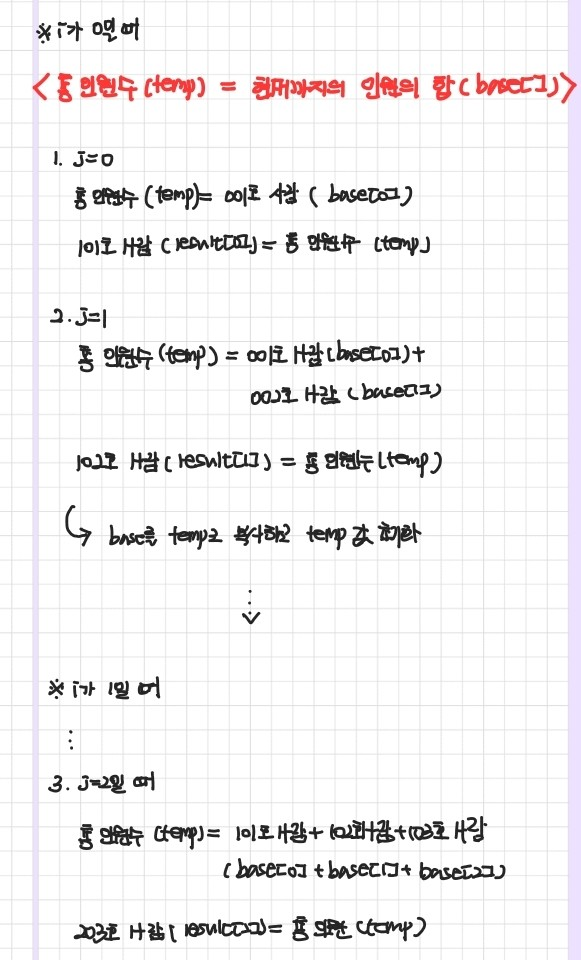 ※ i가 0일 때
< 총 인원수 (temp) = 현재까지의 인원의 합 (base[]) >
1. j=0
총 인원수 (temp) = 001호 사람 ( base[0] )
101호 사람 (result[0]) = 총 인원수 (temp)
2. j=1
총 인원수 (temp) = 001호 사람 (base[0]) +
002호 사람 (base[1])
102호 사람 (result[1]) = 총 인원수 (temp)
base를 temp로 복사하고 temp 값 초기화
※ i가 1일 때
3. j=2일 때
총 인원수 (temp) = 101호 사람 + 102호 사람 + 103호 사람
(base[0] + base[1] + base[2])
203호 사람 (result[2]) = 총 인원 (temp)